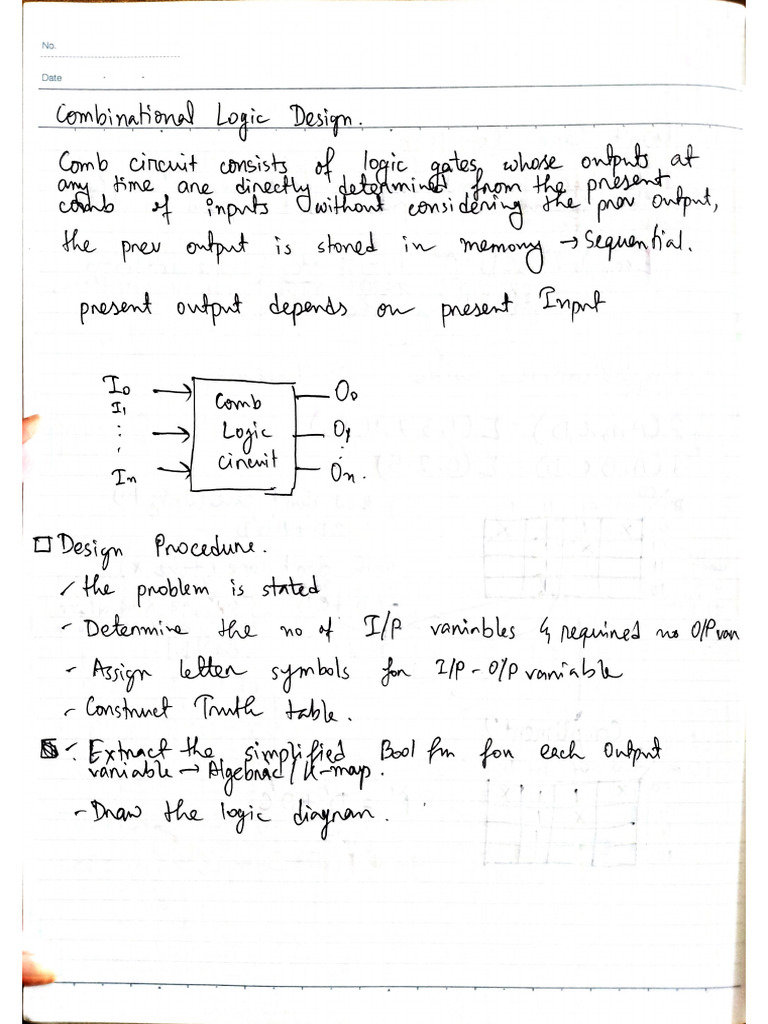 No.
Date
Combinational Logic Design.
Comb circuit consists of logic gates whose outputs at
any time are directly determined from the present
comb of inputs without considering the prev output,
the prev output is stored in memory → Sequential.
present output depends on present Input
I0 → Comb O0
I1
: → Logic O1
In → circuit On.
□ Design Procedure.
✓ the problem is stated
- Determine the no of I/P variables & required no O/P var
- Assign letter symbols for I/P - O/P variable
- Construct Truth table.
Extract the simplified Bool fn for each output
variable → Algebraic / K-map.
- Draw the logic diagram.